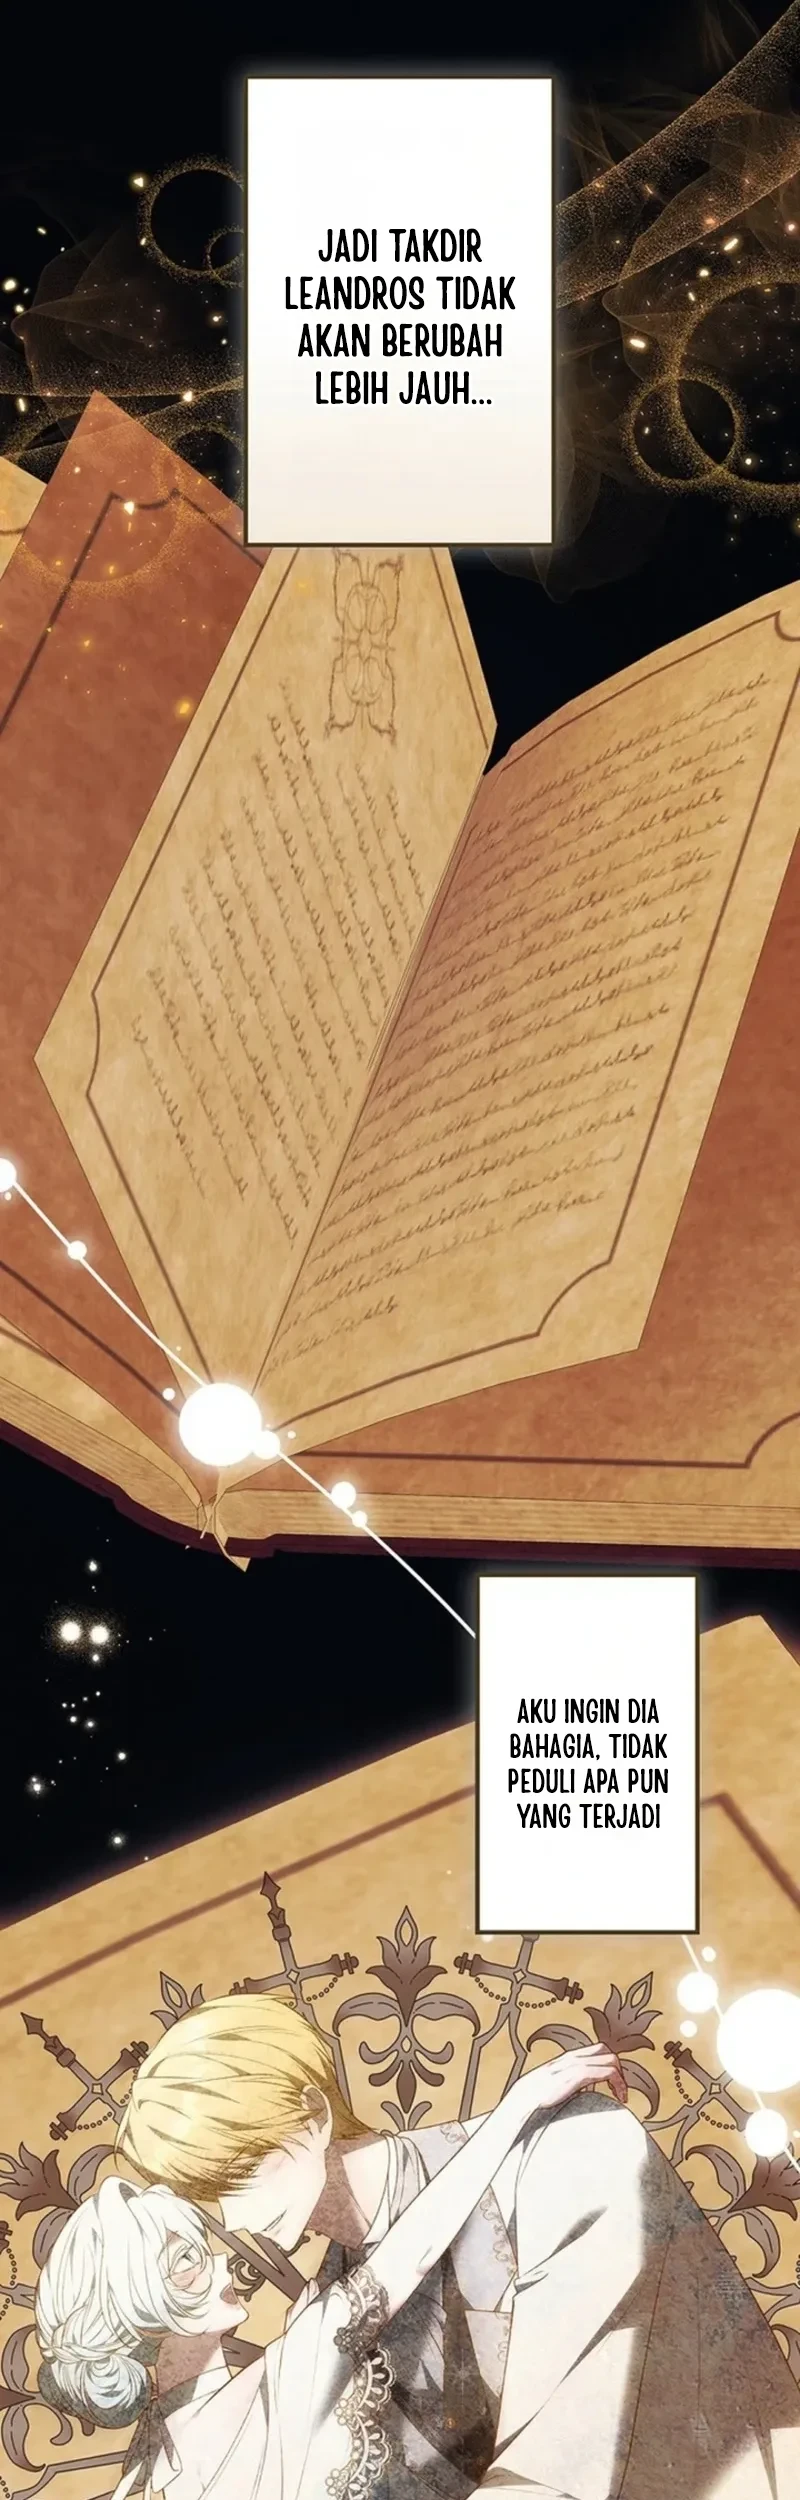 JADI TAKDIR
LEANDROS TIDAK
AKAN BERUBAH
LEBIH JAUH...
AKU INGIN DIA
BAHAGIA, TIDAK
PEDULI APA PUN
YANG TERJADI